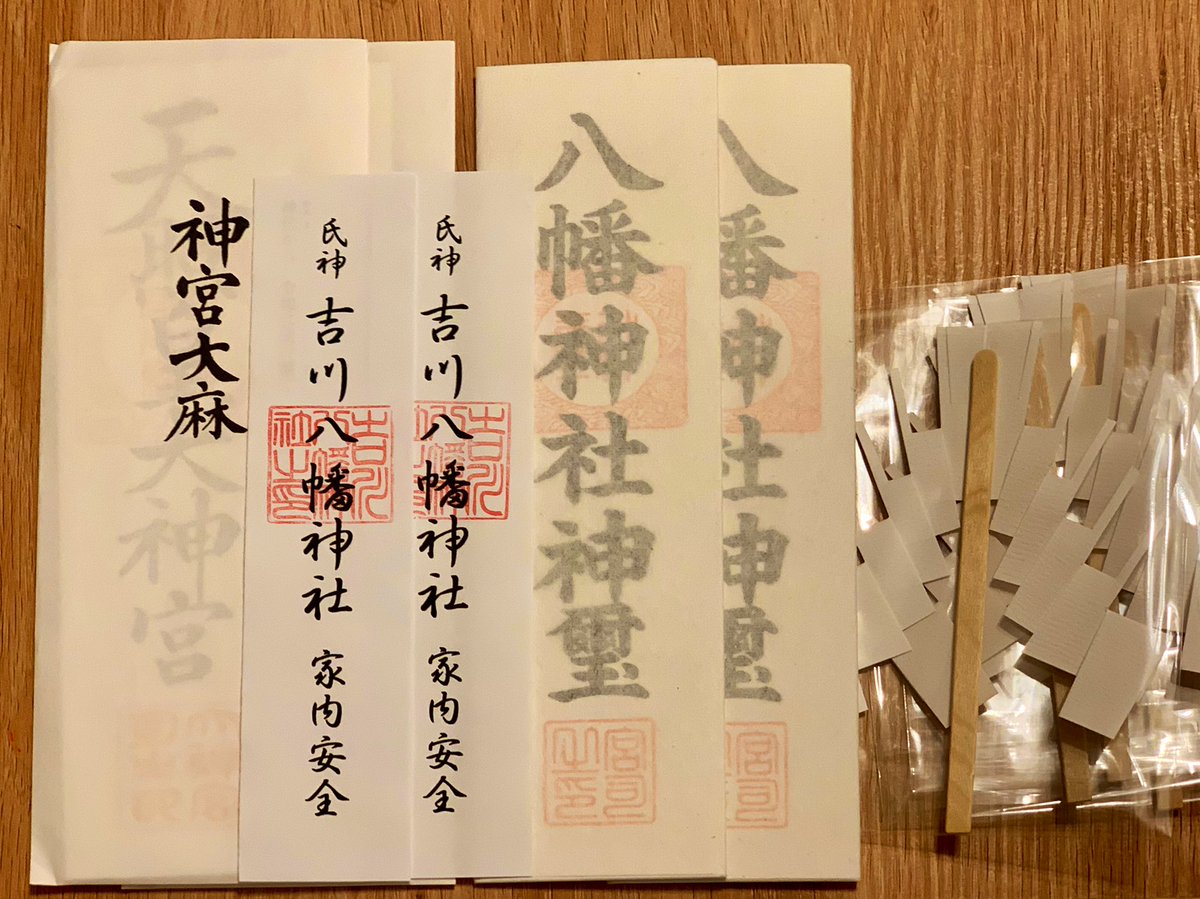 天照皇大神宮
神宮大麻
氏神 吉川八幡神社 家内安全
氏神 吉川八幡神社 家内安全
八幡神社神璽
宮司之印
八幡神社神璽
宮司